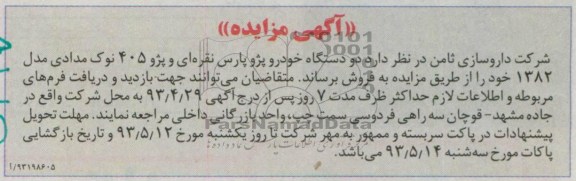 ((آگهی مزایده))
شرکت داروسازی ثامن در نظر دارد دو دستگاه خودرو پژو پارس نقره‌ای و پژو ۴۰۵ نوک مدادی مدل
۱۳۸۲ خود را از طریق مزایده به فروش برساند. متقاضیان می‌توانند جهت بازدید و دریافت فرم‌های
مربوطه و اطلاعات لازم حداکثر ظرف مدت ۷ روز پس از درج آگهی ۹۳/۴/۲۹ به محل شرکت واقع در
جاده مشهد- قوچان سه راهی فردوسی سمت چپ، واحد بازرگانی داخلی مراجعه نمایند. مهلت تحویل
پیشنهادات در پاکت سربسته و ممهور به مهر شرکت تا روز یکشنبه مورخ ۹۳/۵/۱۲ و تاریخ بازگشایی
پاکات مورخ سه‌شنبه ۹۳/۵/۱۴ می‌باشد.
۱/۹۳۱۹۸۶۰۵